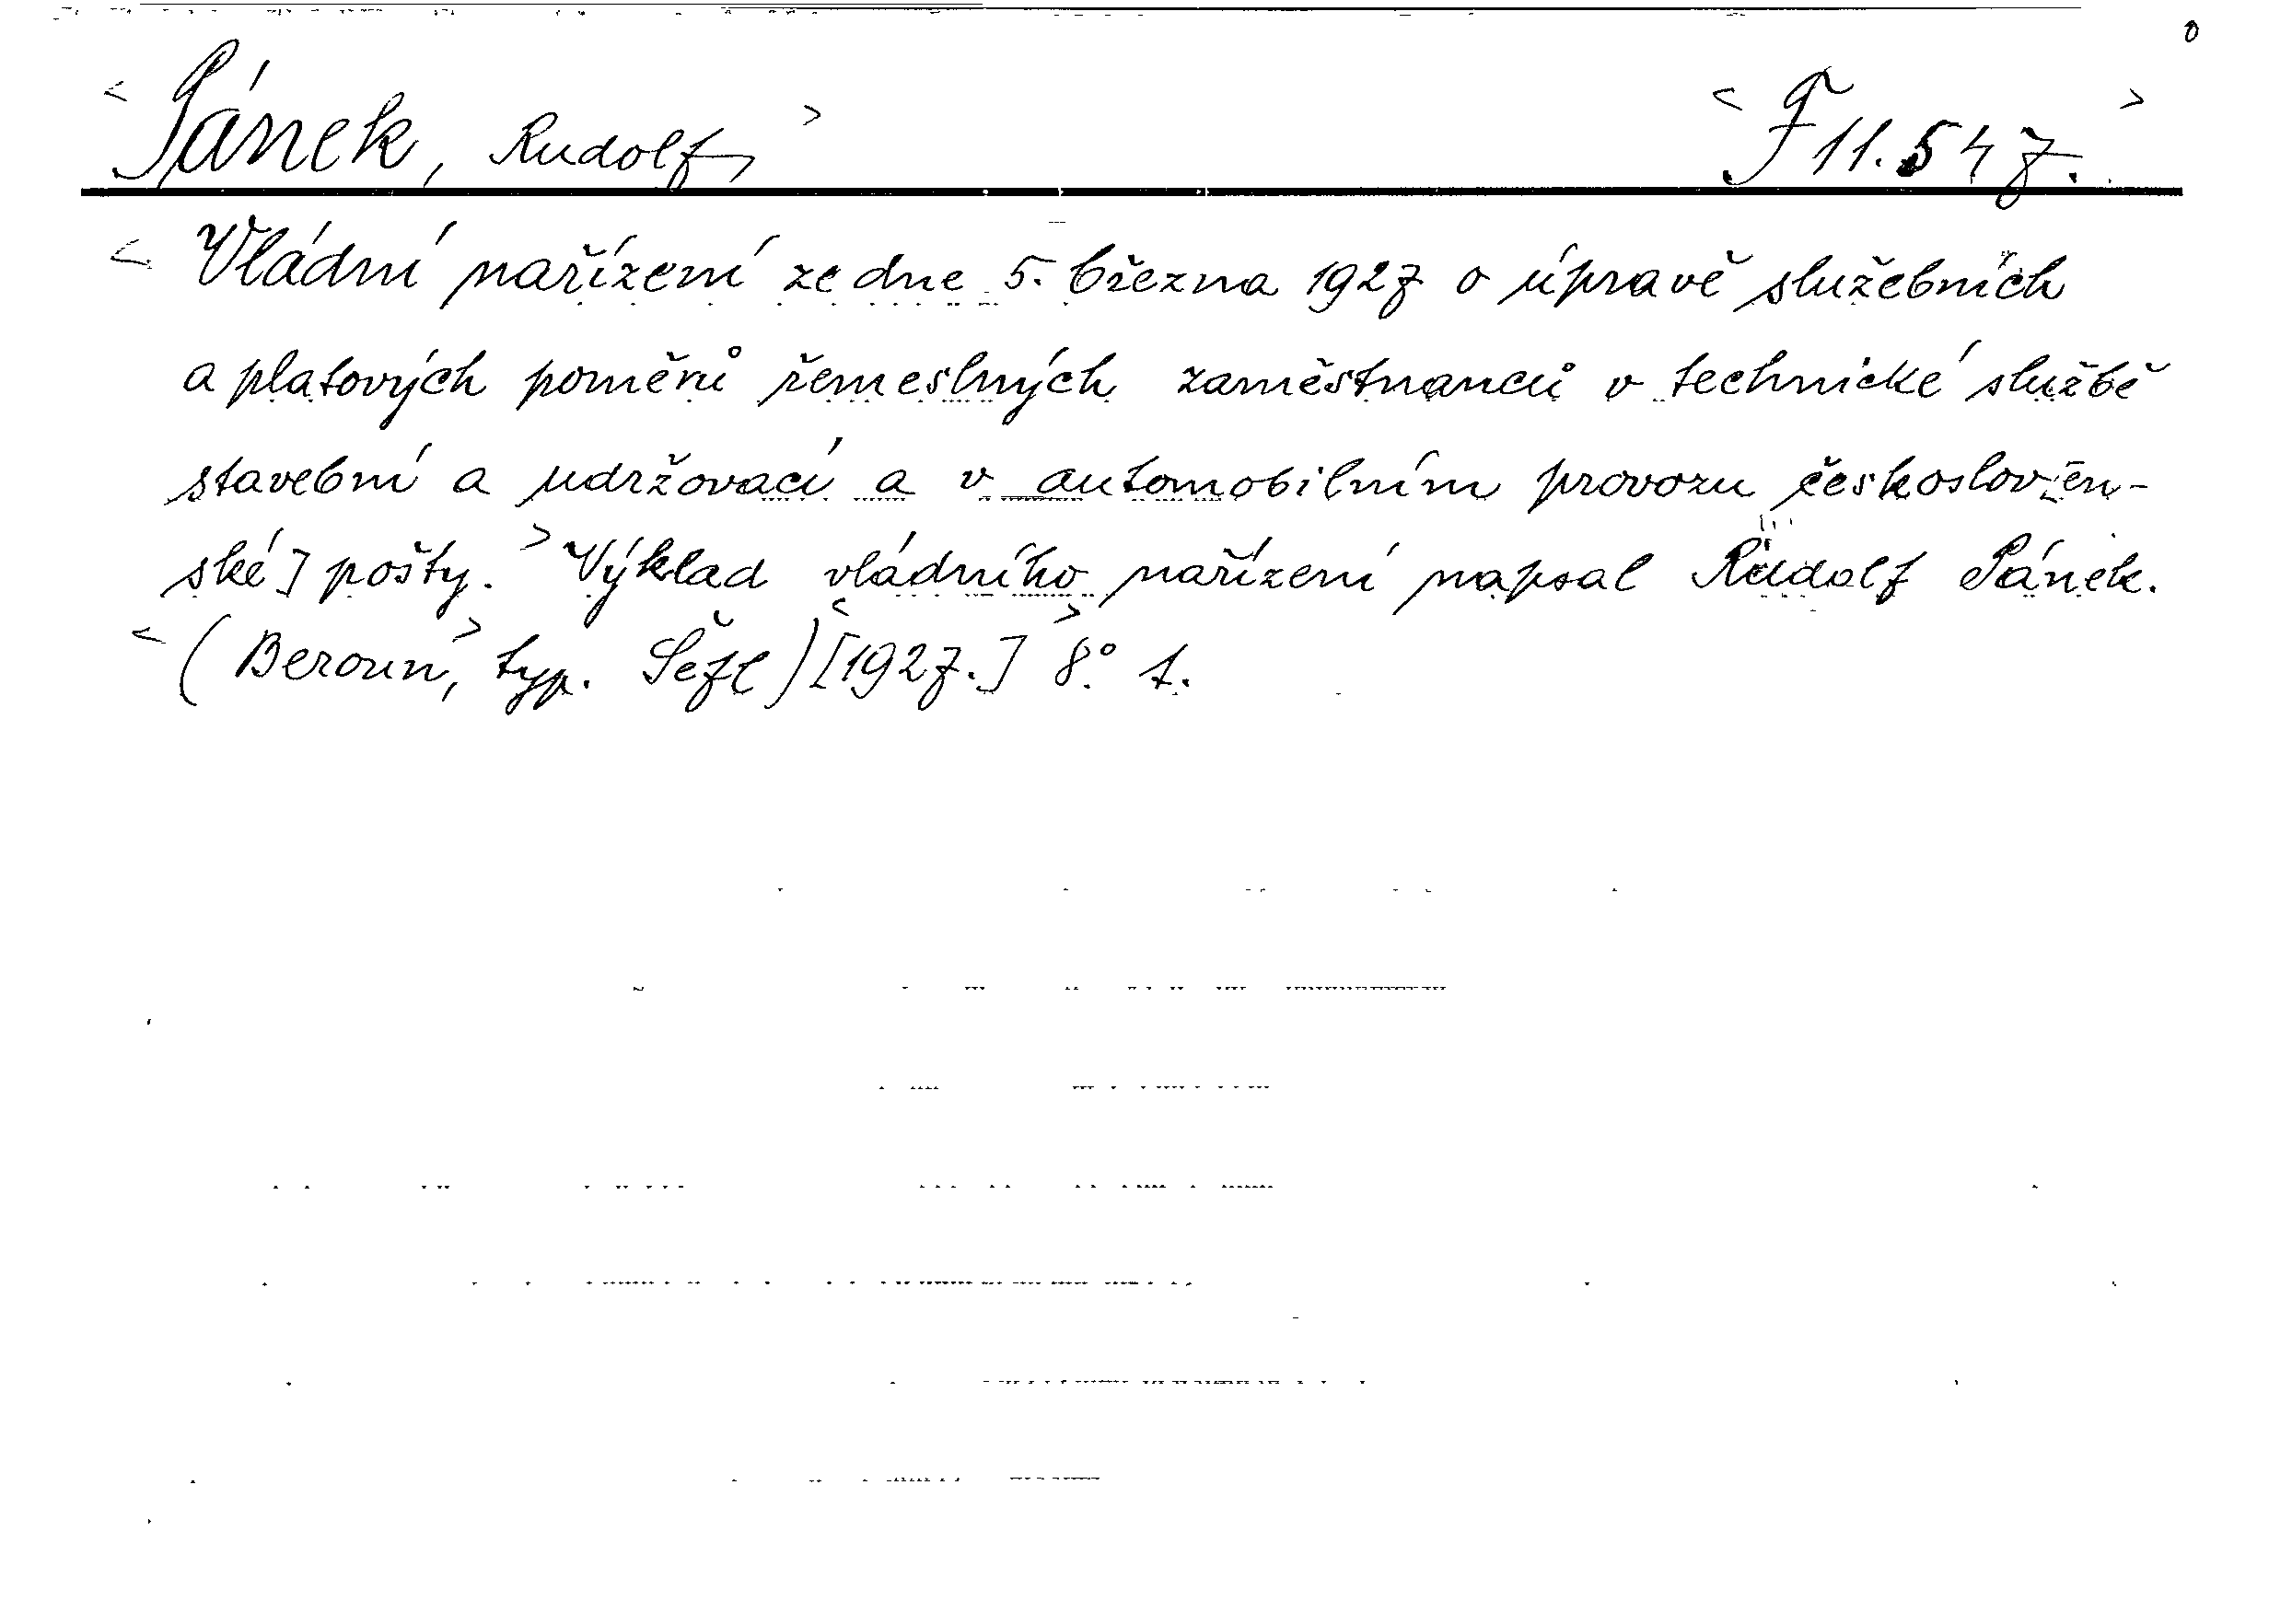 <Pánek, Rudolf> <F 11.547.>
<Vládní nařízení ze dne 5. března 1927 o úpravě služebních
a platových poměrů řemeslných zaměstnanců v technické službě
stavební a udržovací a v automobilním provozu českosloven-
ské] pošty.> Výklad vládního nařízení napsal Rudolf Pánek.
<(Beroun,> typ. Šefl) <[1927.]> 8.° 1.